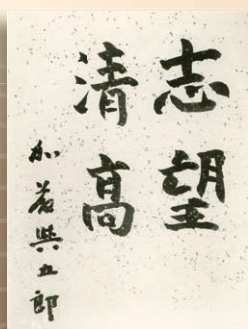 志望
清高
加藤與五郎